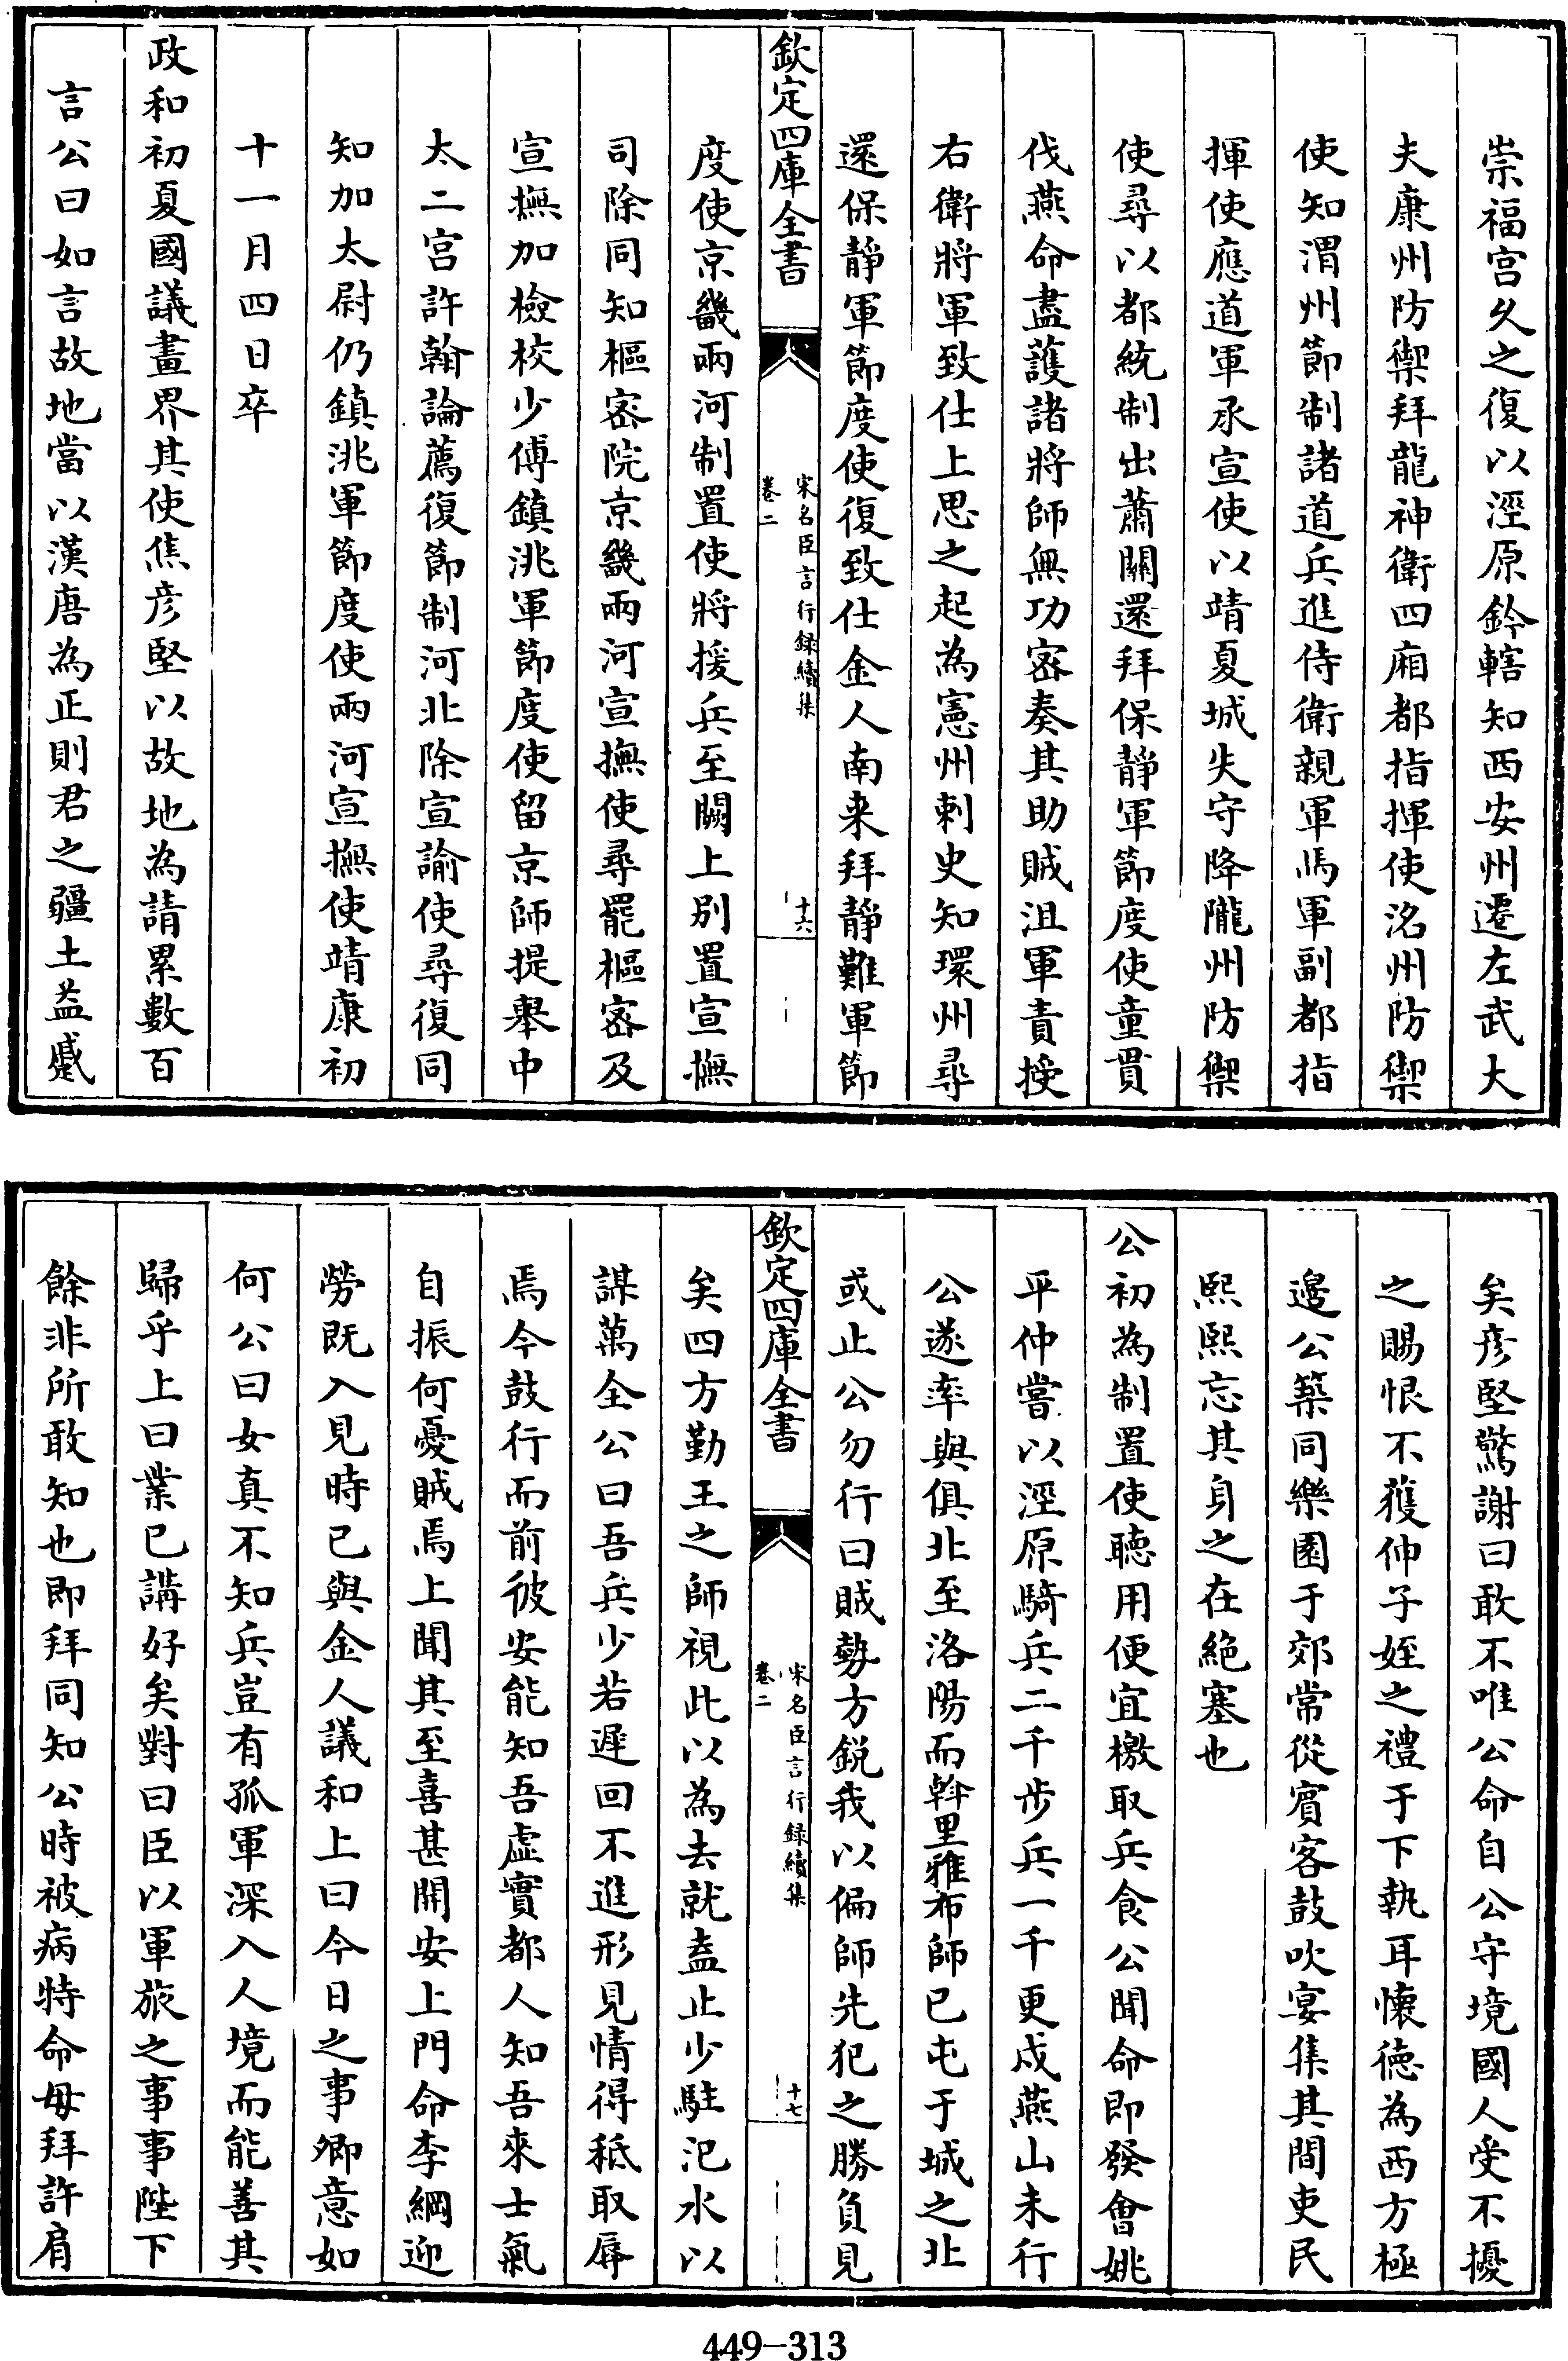 崇福宫久之復以涇原鈐轄知西安州遷左武大
夫康州防禦拜龍神衛四廂都指揮使洺州防禦
使知渭州節制諸道兵進侍衛親軍馬軍副都指
揮使應道軍承宣使以靖夏城失守降隴州防禦
使尋以都統制出蕭關還拜保靜軍節度使童貫
伐燕命盡護諸將師無功宻奏其助賊沮軍責授
右衛將軍致仕上思之起為憲州刺史知環州尋
還保靜軍節度使復致仕金人南来拜靜難軍節
欽定四庫全書
宋名臣言行録續集
卷二
十六
度使京畿兩河制置使將援兵至闕上别置宣撫
司除同知樞宻院京畿兩河宣撫使尋罷樞宻及
宣撫加檢校少傅鎮洮軍節度使留京師提舉中
太二宫許翰論薦復節制河北除宣諭使尋復同
知加太尉仍鎮洮軍節度使兩河宣撫使靖康初
十一月四日卒
政和初夏國議畫界其使焦彦堅以故地為請累數百
言公曰如言故地當以漢唐為正則君之疆土益蹙
矣彦堅驚謝曰敢不唯公命自公守境國人受不擾
之賜恨不獲伸子姪之禮于下執耳懷徳為西方極
邊公築同樂園于郊常從賔客鼓吹宴集其間吏民
熙熙忘其身之在絶塞也
公初為制置使聴用便宜檄取兵食公聞命即發會姚
平仲嘗以涇原騎兵二千步兵一千更戍燕山未行
公遂率與俱北至洛陽而斡里雅布師已屯于城之北
或止公勿行曰賊勢方鋭我以偏師先犯之勝負見
欽定四庫全書
宋名臣言行録續集
卷二
十七
矣四方勤王之師視此以為去就盍止少駐汜水以
謀萬全公曰吾兵少若遲回不進形見情得秪取辱
焉今鼓行而前彼安能知吾虚實都人知吾來士氣
自振何憂賊焉上聞其至喜甚開安上門命李綱迎
勞既入見時已與金人議和上曰今日之事卿意如
何公曰女真不知兵豈有孤軍深入人境而能善其
歸乎上曰業已講好矣對曰臣以軍旅之事事陛下
餘非所敢知也即拜同知公時被病特命毋拜許肩
449-313